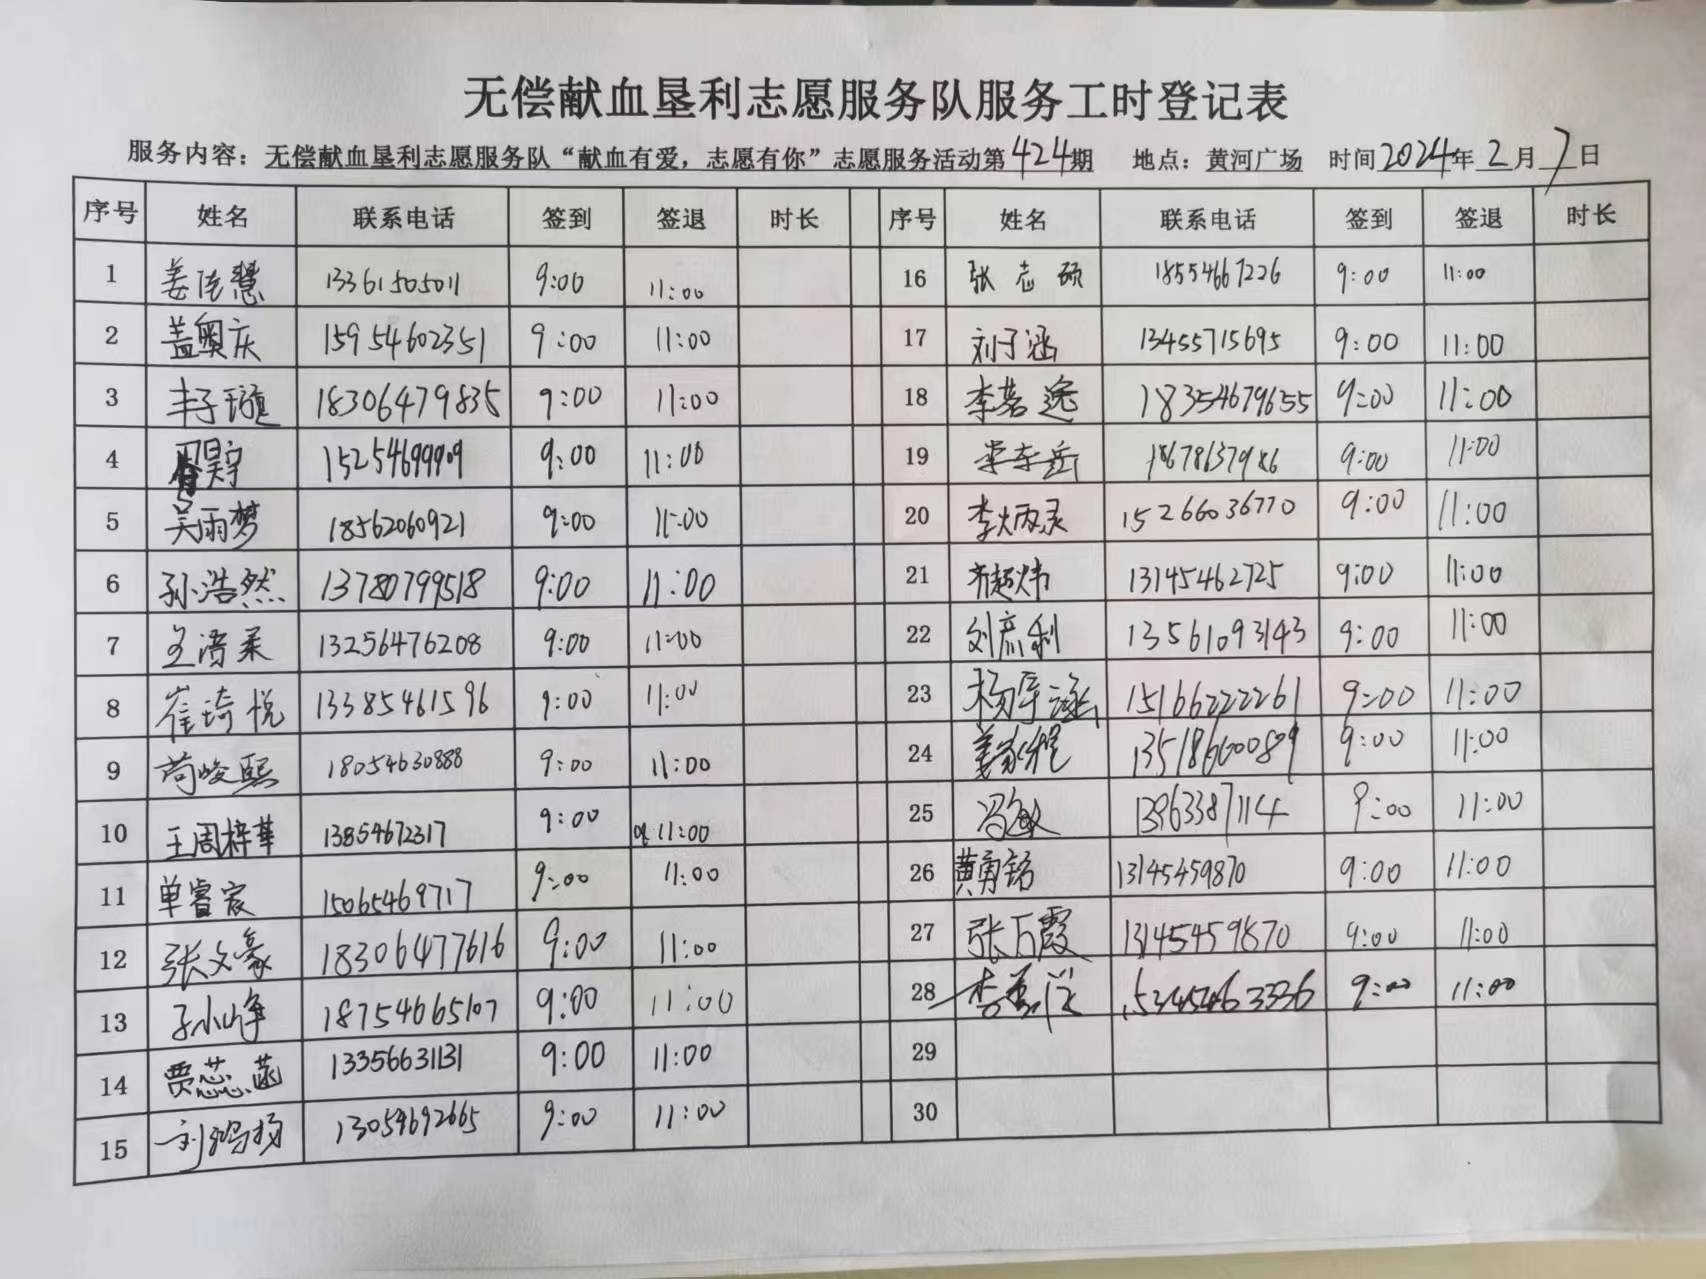 无偿献血垦利志愿服务队服务工时登记表
服务内容：无偿献血垦利志愿服务队“献血有爱，志愿有你”志愿服务活动第424期 地点：黄河广场 时间2024年2月7日
序号 姓名 联系电话 签到 签退 时长 序号 姓名 联系电话 签到 签退 时长
1 姜 慧 13361505011 9:00 11:00 16 张志硕 18554667226 9:00 11:00
2 盖奥庆 15954602351 9:00 11:00 17 刘子涵 13455715695 9:00 11:00
3 丰子璇 18306479835 9:00 11:00 18 李若逸 18354679655 9:00 11:00
4 15254699909 9:00 11:00 19 李东岳 18678637986 9:00 11:00
5 吴雨梦 18562060921 9:00 11:00 20 李炳灵 15266036770 9:00 11:00
6 孙浩然 13780799518 9:00 11:00 21 13145462725 9:00 11:00
7 王湑柔 13256476208 9:00 11:00 22 刘彦利 13561093143 9:00 11:00
8 崔琦悦 13385461596 9:00 11:00 23 杨宇涵 15166222261 9:00 11:00
9 荀峻熙 18054630888 9:00 11:00 24 姜 程 13518660089 9:00 11:00
10 王周梓華 13854672317 9:00 11:00 25 冯敏 13963387114 9:00 11:00
11 单睿宸 15065469717 9:00 11:00 26 黄勇铭 13145459870 9:00 11:00
12 张文豪 18306477616 9:00 11:00 27 张万霞 13145459870 9:00 11:00
13 孙小峥 18754665107 9:00 11:00 28 李 15345463336 9:00 11:00
14 贾蕊菡 13356631131 9:00 11:00 29
15 刘鸿扬 13054692665 9:00 11:00 30